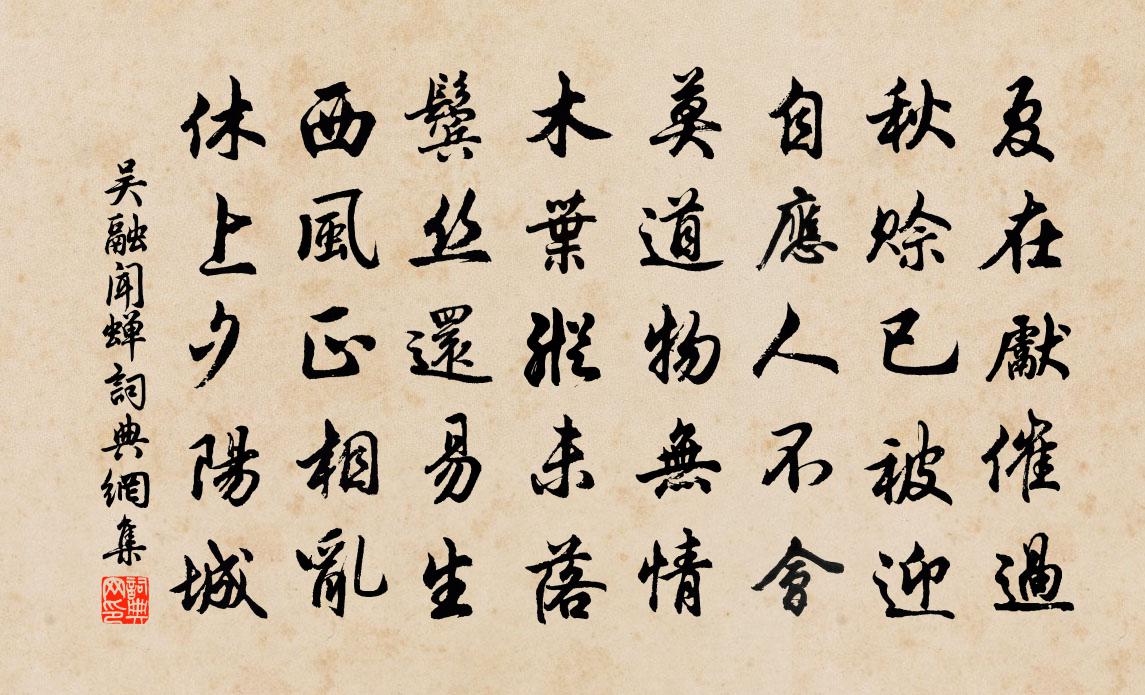 夏在獻催過
秋賒已被迎
自應人不會
莫道物無情
木葉縱未落
鬢丝還易生
西風正相亂
休上夕陽城
吴融闻蝉詞典網集
詞典网印